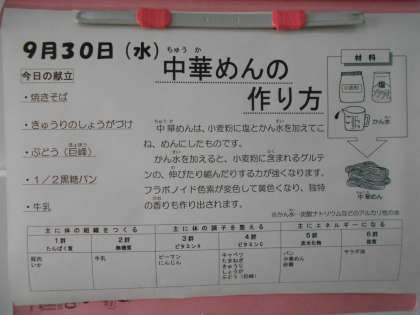 9月30日(水)
ちゅうか
中華めんの
作り方
今日の献立
・焼きそば
・きゅうりのしょうがづけ
きょほう
・ぶどう(巨峰)
・1/2黒糖パン
・牛乳
材料
小麦粉
塩
かん水
中華めん
ちゅうか
中華めんは、小麦粉に塩とかん水を加えてこ
ね、めんにしたものです。
かん水を加えると、小麦粉に含まれるグルテ
ンの、伸びたり縮んだりする力が強くなります。
フラボノイド色素が変色して黄色くなり、独特
の香りも作り出されます。
※かん水…炭酸ナトリウムなどのアルカリ性の水
主に体の組織をつくる 主に体の調子を整える 主にエネルギーになる
1群 2群 3群 4群 5群 6群
たんぱく質 無機質 ビタミンA ビタミンC 炭水化物 脂質
豚肉 牛乳 ピーマン キャベツ パン サラダ油
いか にんじん たまねぎ 中華めん
きゅうり 砂糖
しょうが
ぶどう(巨峰)